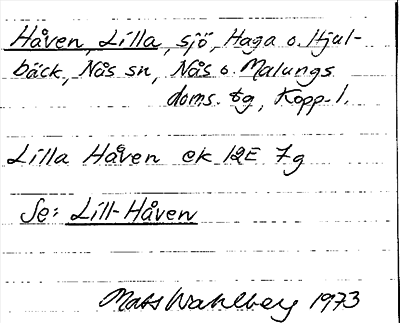 Håven, Lilla, sjö, Haga o. Hjul-
bäck, Nås sn, Nås o. Malungs
doms. tg, Kopp. l.
Lilla Håven ek 12E 7g
Se: Lill-Håven
Mats Wahlberg 1973